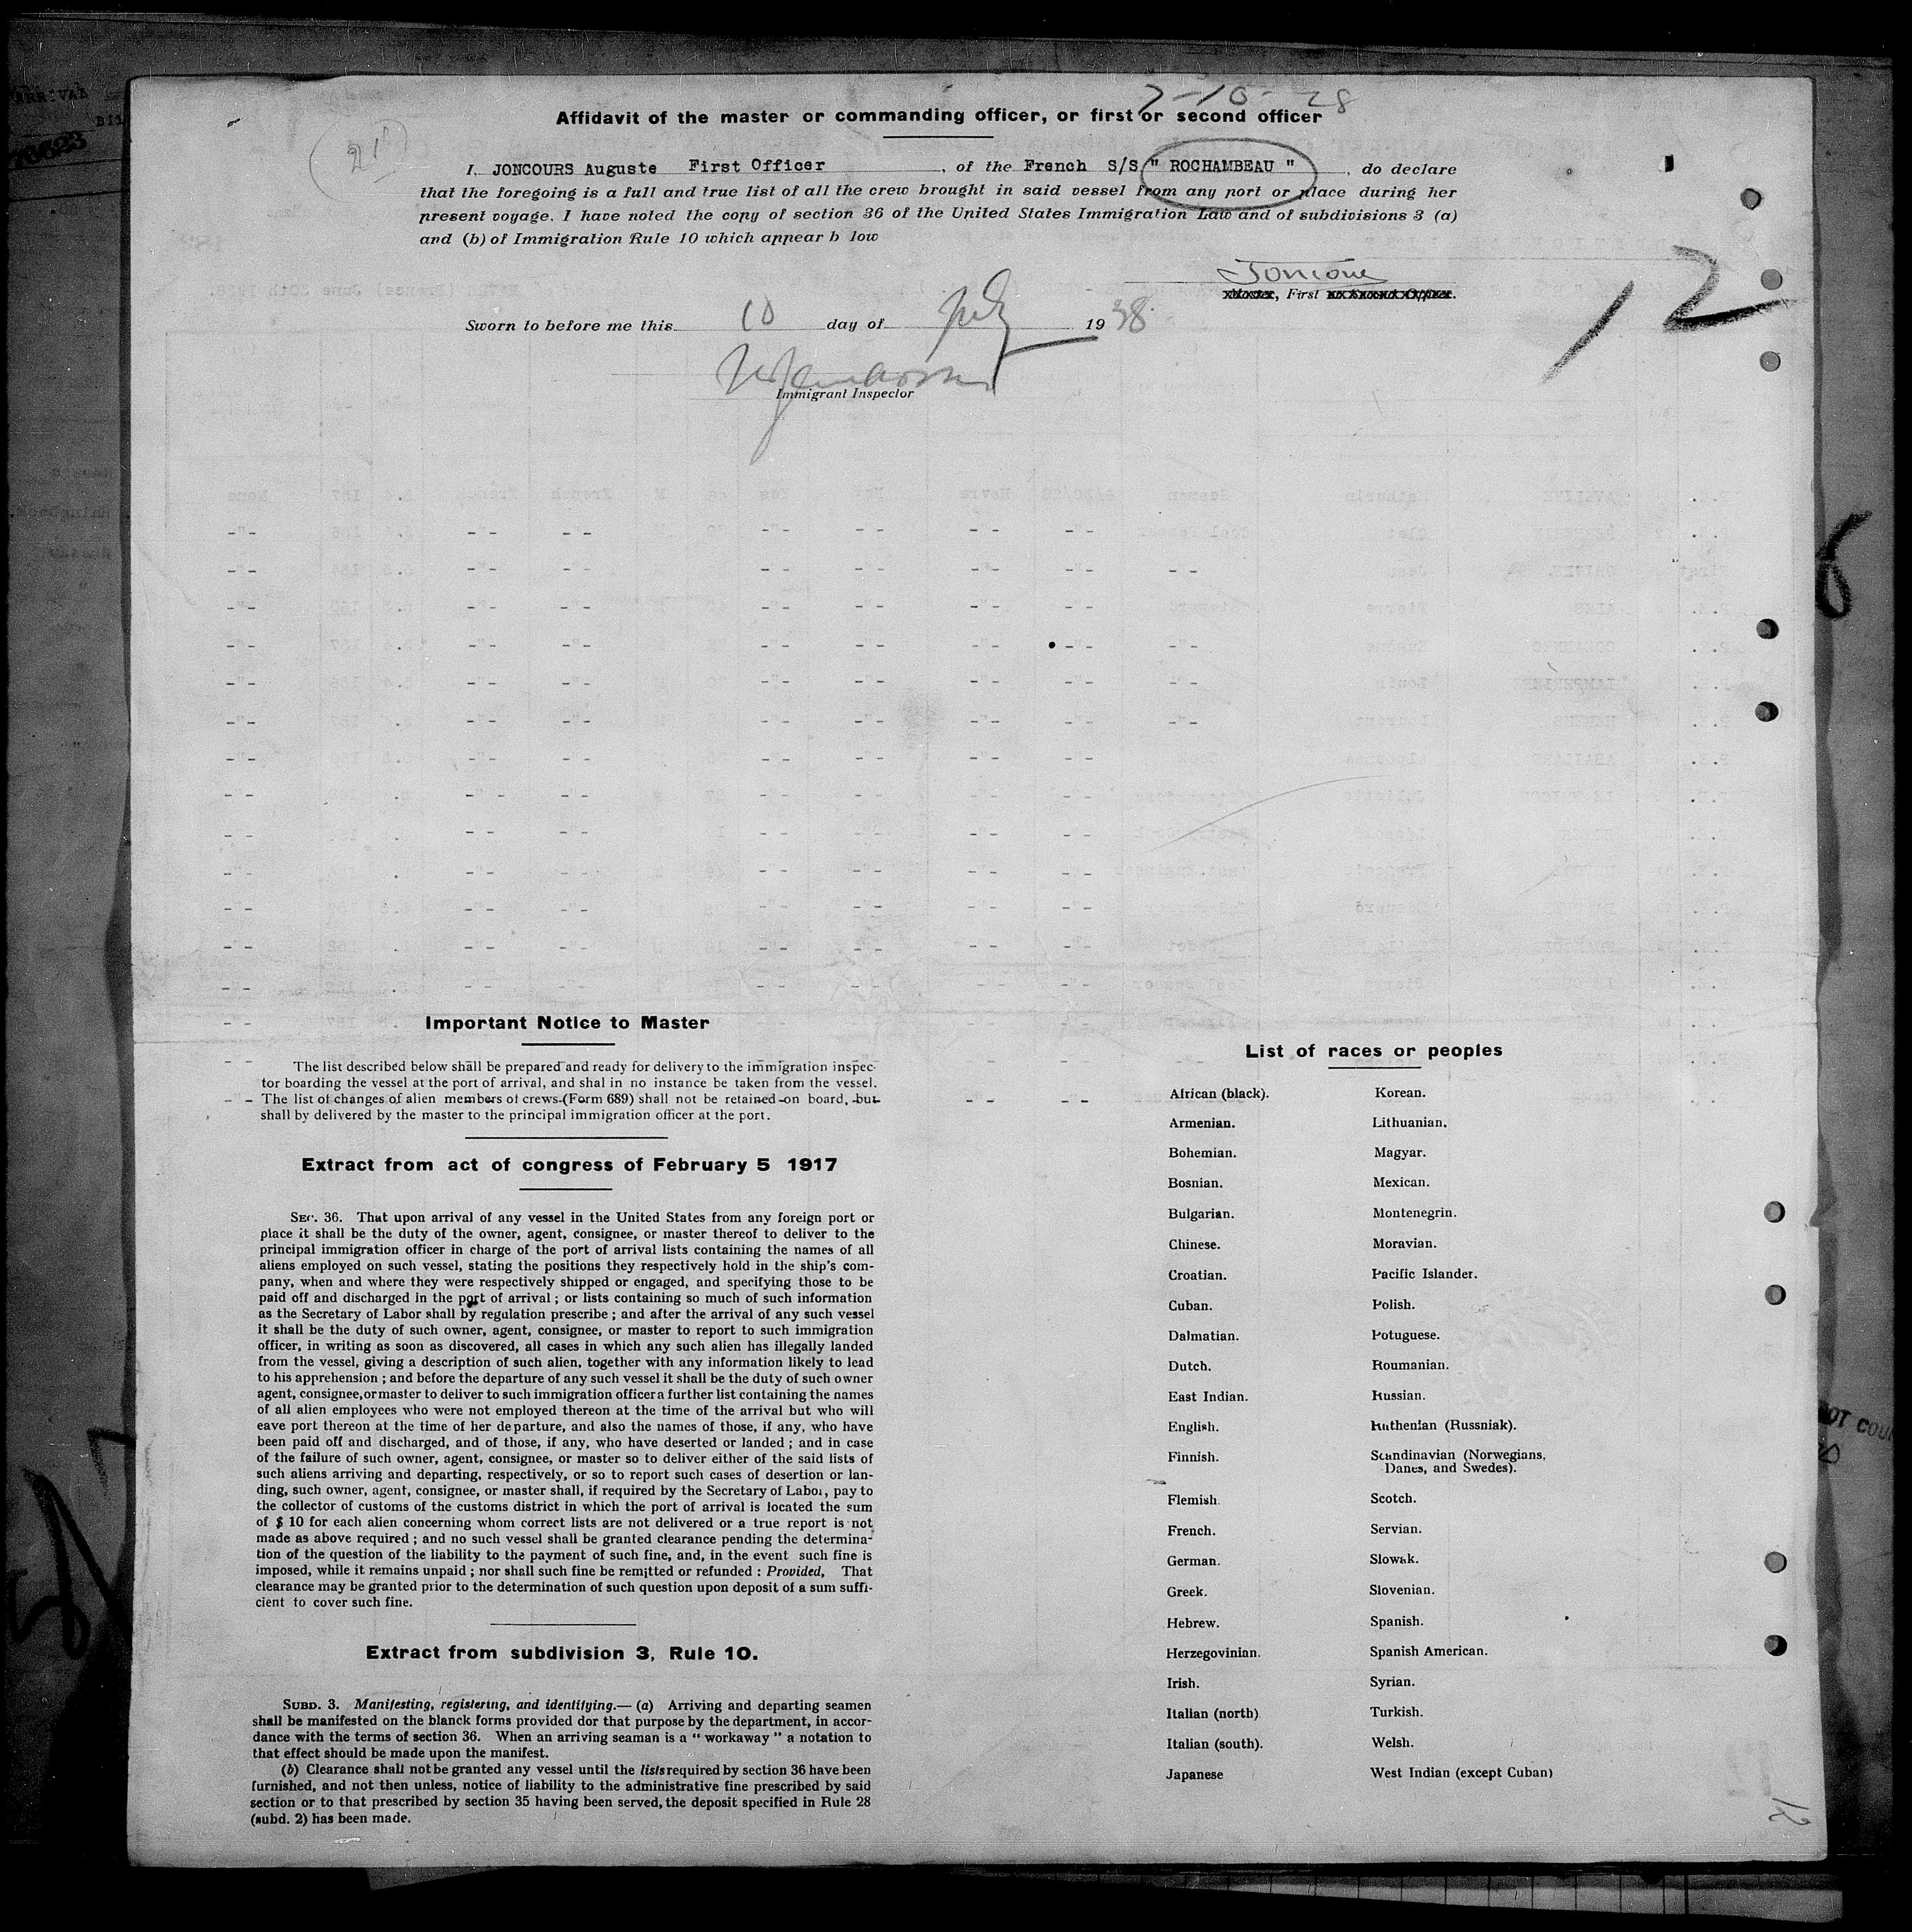 7-10-28
Affidavit of the master or commanding officer, or first or second officer
21
I, JONCOURS Auguste First Officer , of the French S/S " ROCHAMBEAU " , do declare
that the foregoing is a full and true list of all the crew brought in said vessel from any port or place during her
present voyage. I have noted the copy of section 36 of the United States Immigration Law and of subdivisions 3 (a)
and (b) of Immigration Rule 10 which appear b low
Master, First or Second Officer.
12
Sworn to before me this 10 day of July 1938
Immigrant Inspector
Important Notice to Master
The list described below shall be prepared and ready for delivery to the immigration inspec-
tor boarding the vessel at the port of arrival, and shal in no instance be taken from the vessel.
The list of changes of alien members of crews (Form 689) shall not be retained on board, but
shall by delivered by the master to the principal immigration officer at the port.
Extract from act of congress of February 5 1917
SEC. 36. That upon arrival of any vessel in the United States from any foreign port or
place it shall be the duty of the owner, agent, consignee, or master thereof to deliver to the
principal immigration officer in charge of the port of arrival lists containing the names of all
aliens employed on such vessel, stating the positions they respectively hold in the ship's com-
pany, when and where they were respectively shipped or engaged, and specifying those to be
paid off and discharged in the port of arrival ; or lists containing so much of such information
as the Secretary of Labor shall by regulation prescribe ; and after the arrival of any such vessel
it shall be the duty of such owner, agent, consignee, or master to report to such immigration
officer, in writing as soon as discovered, all cases in which any such alien has illegally landed
from the vessel, giving a description of such alien, together with any information likely to lead
to his apprehension ; and before the departure of any such vessel it shall be the duty of such owner
agent, consignee, or master to deliver to such immigration officer a further list containing the names
of all alien employees who were not employed thereon at the time of the arrival but who will
eave port thereon at the time of her departure, and also the names of those, if any, who have
been paid off and discharged, and of those, if any, who have deserted or landed ; and in case
of the failure of such owner, agent, consignee, or master so to deliver either of the said lists of
such aliens arriving and departing, respectively, or so to report such cases of desertion or lan-
ding, such owner, agent, consignee, or master shall, if required by the Secretary of Labor, pay to
the collector of customs of the customs district in which the port of arrival is located the sum
of $ 10 for each alien concerning whom correct lists are not delivered or a true report is not
made as above required ; and no such vessel shall be granted clearance pending the determina-
tion of the question of the liability to the payment of such fine, and, in the event such fine is
imposed, while it remains unpaid ; nor shall such fine be remitted or refunded : Provided, That
clearance may be granted prior to the determination of such question upon deposit of a sum suffi-
cient to cover such fine.
Extract from subdivision 3, Rule 10.
SUBD. 3. Manifesting, registering, and identifying.— (a) Arriving and departing seamen
shall be manifested on the blanck forms provided dor that purpose by the department, in accor-
dance with the terms of section 36. When an arriving seaman is a " workaway " a notation to
that effect should be made upon the manifest.
(b) Clearance shall not be granted any vessel until the lists required by section 36 have been
furnished, and not then unless, notice of liability to the administrative fine prescribed by said
section or to that prescribed by section 35 having been served, the deposit specified in Rule 28
(subd. 2) has been made.
List of races or peoples
African (black). Korean.
Armenian. Lithuanian.
Bohemian. Magyar.
Bosnian. Mexican.
Bulgarian. Montenegrin.
Chinese. Moravian.
Croatian. Pacific Islander.
Cuban. Polish.
Dalmatian. Potuguese.
Dutch. Roumanian.
East Indian. Russian.
English. Ruthenian (Russniak).
Finnish. Scandinavian (Norwegians,
Danes, and Swedes).
Flemish. Scotch.
French. Servian.
German. Slowak.
Greek. Slovenian.
Hebrew. Spanish.
Herzegovinian. Spanish American.
Irish. Syrian.
Italian (north) Turkish.
Italian (south). Welsh.
Japanese West Indian (except Cuban)
12